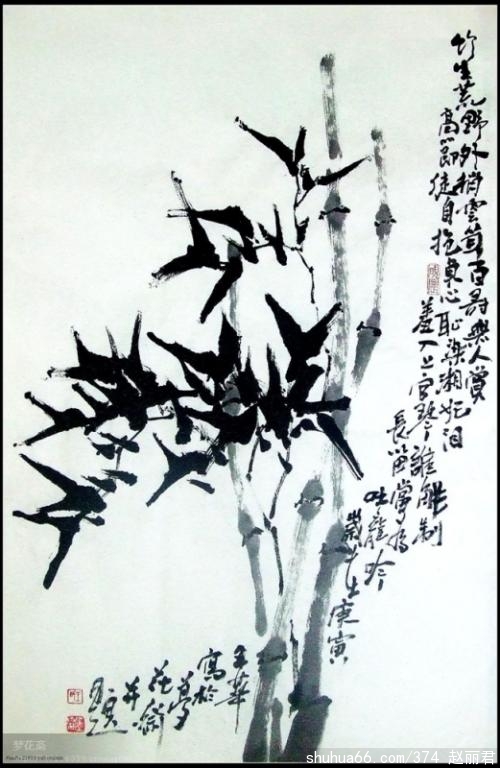 竹生荒野外梢雲聳百尋無人賞
高節徒自抱貞心恥染湘妃泪
羞入上宮琴誰能制
長笛當為
吐龍吟
歲
庚寅
華
寫於
夢
花齋
并
梦花斋
shuhua66.com/374 赵丽君